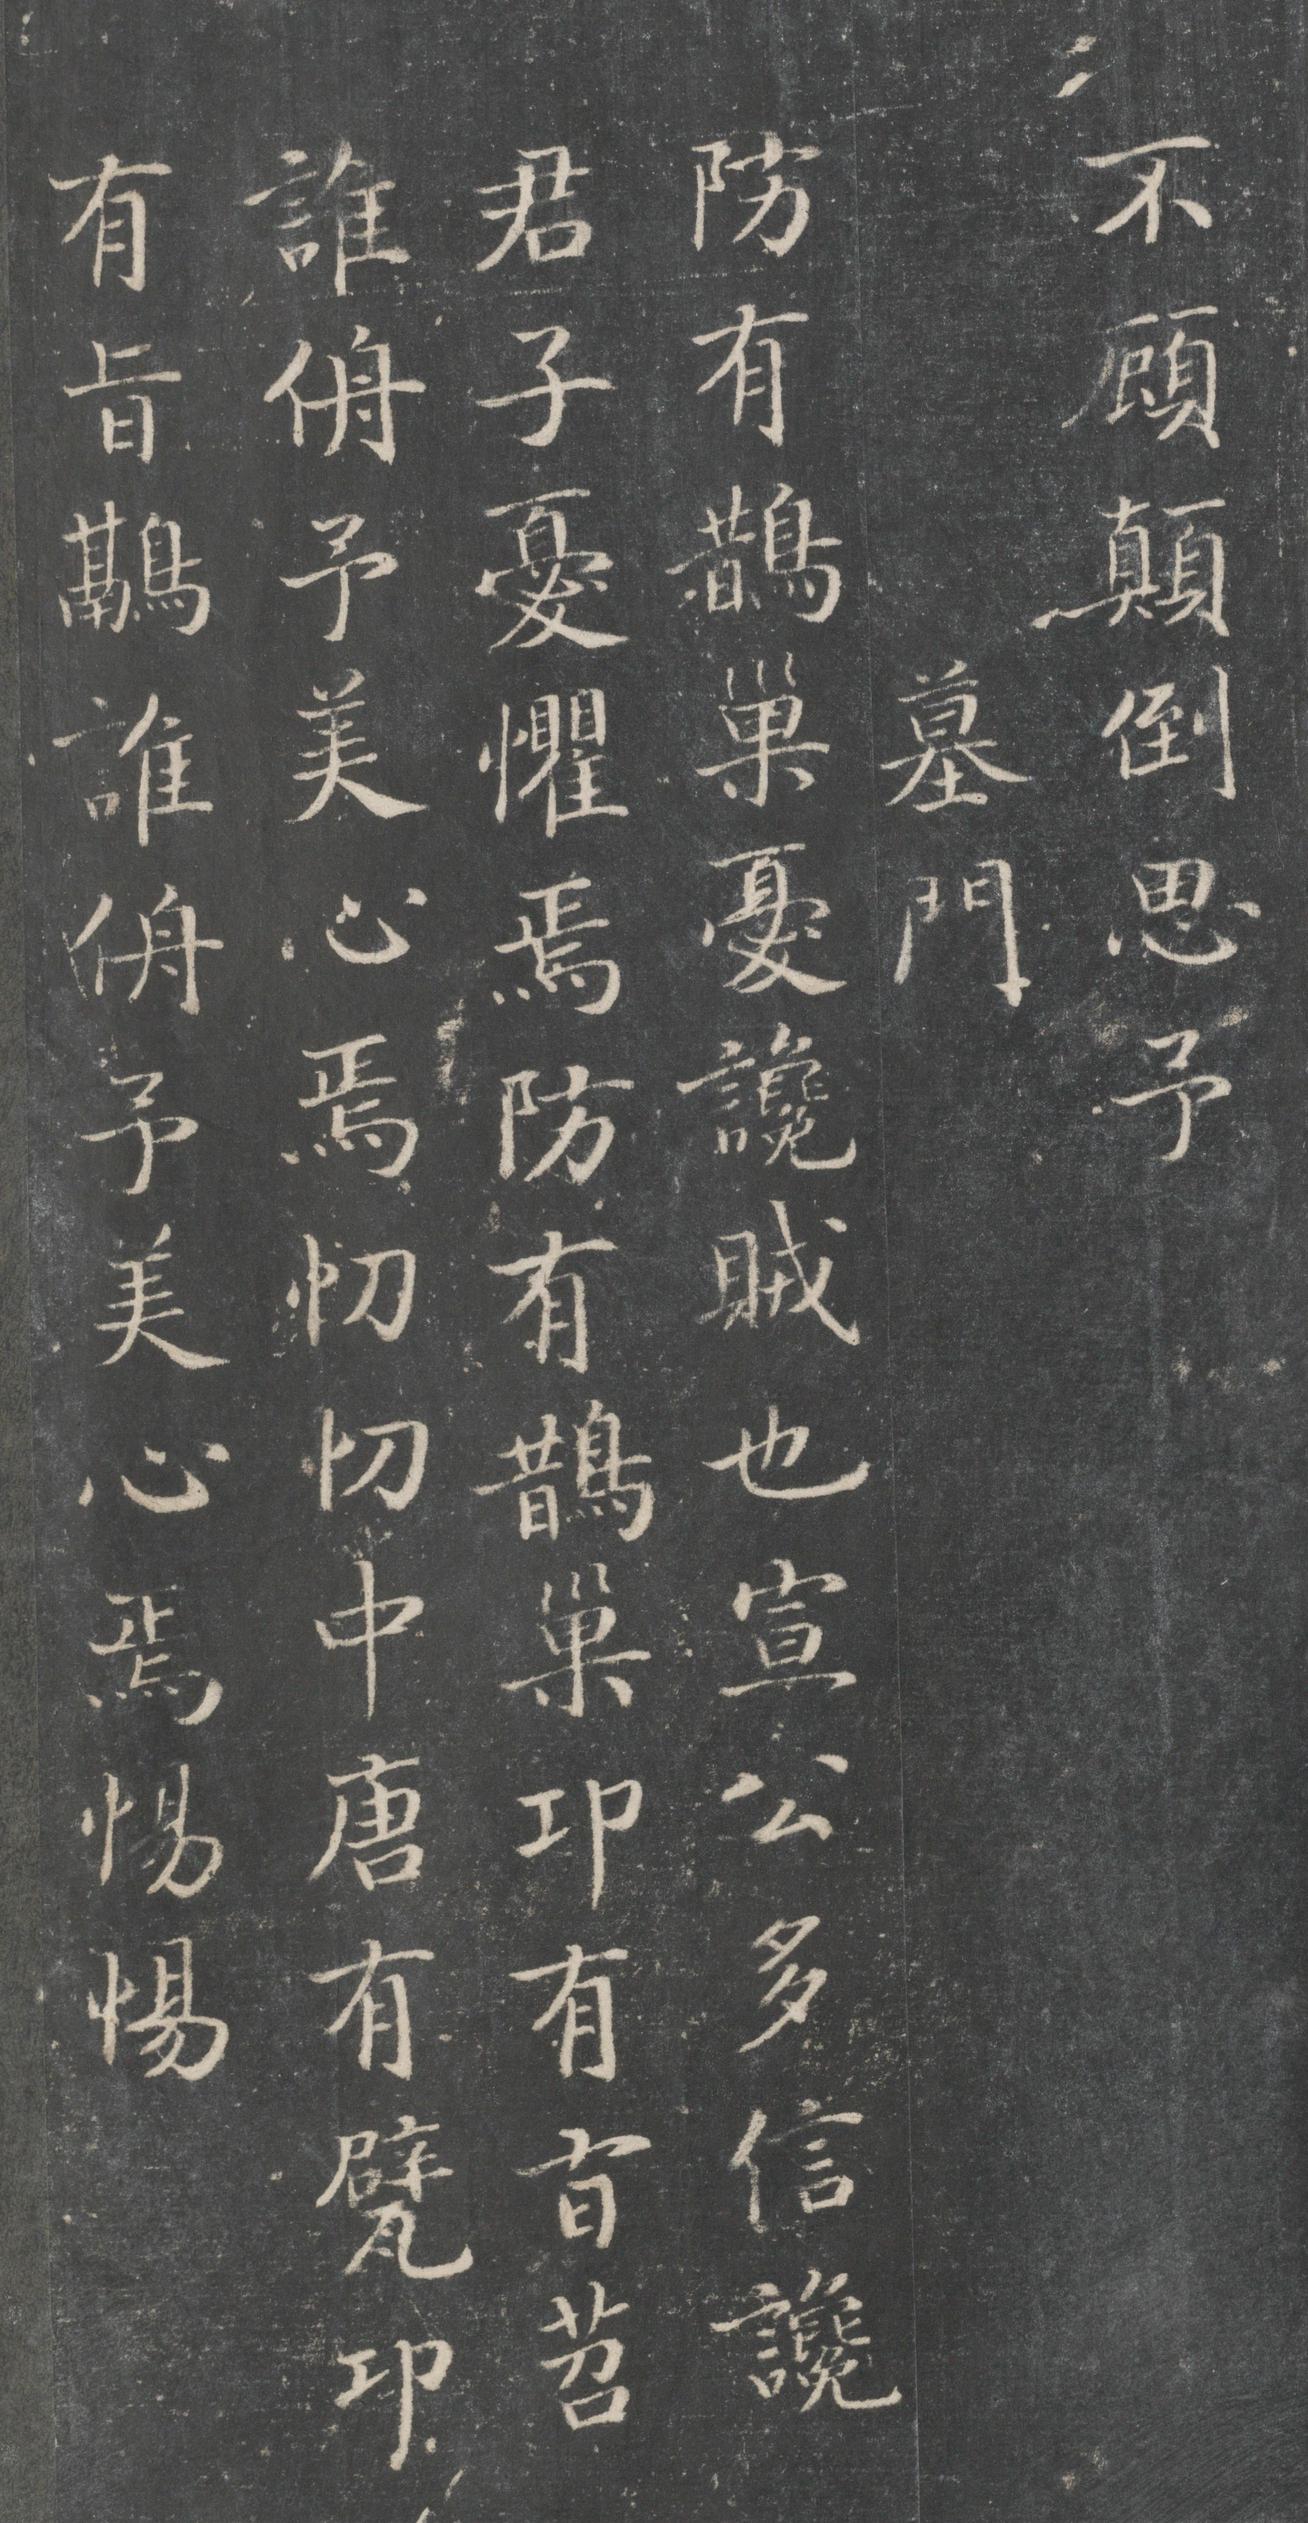 不顧顛倒思予
墓門
防有鵲巢憂讒賊也宣公多信讒
君子憂懼焉防有鵲巢卭有旨苕
誰侜予美心焉忉忉中唐有甓卭
有旨鷊誰侜予美心焉惕惕